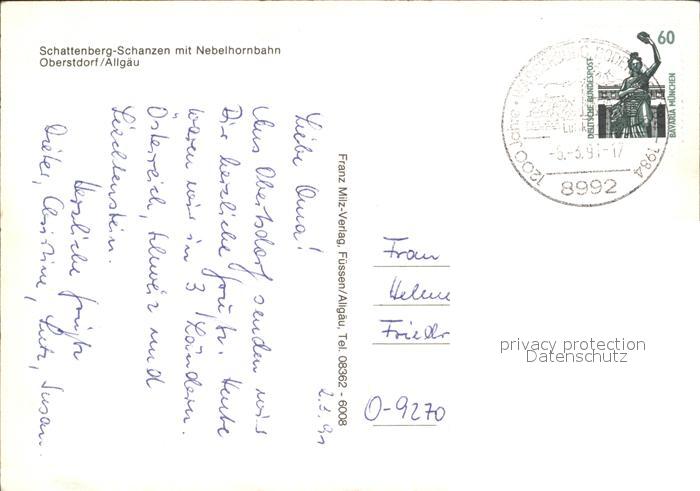 Schattenberg-Schanzen mit Nebelhornbahn
Oberstdorf/Allgäu
Liebe Oma!
Aus Oberstdorf senden wir
Dir herzliche Grüße. Heute
waren wir in 3 Ländern.
Österreich, Schweiz und
Liechtenstein.
Herzliche Grüße
Dieter, Christine, Lutz, Susan.
2.3.91
Franz Milz-Verlag, Füssen/Allgäu, Tel. 08362 - 6008
60
DEUTSCHE BUNDESPOST
BAVARIA MÜNCHEN
1200 Jahre
1984
-5.-3.91-17
8992
Frau
Helene
Friedr
O-9270
privacy protection
Datenschutz